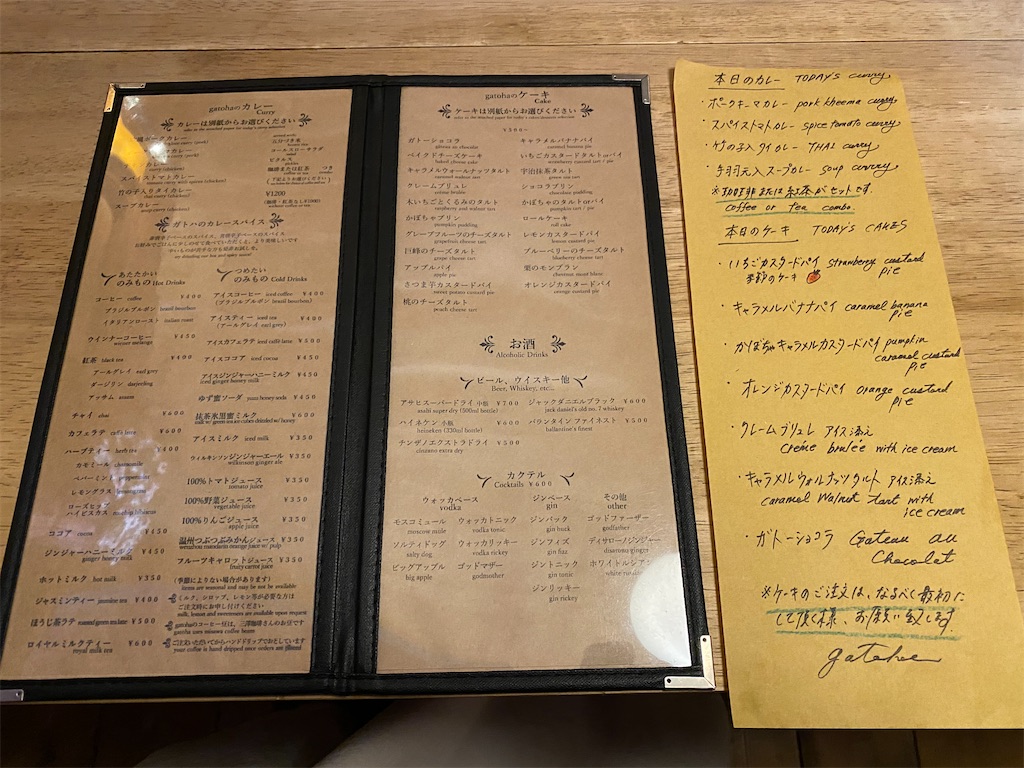 gatohaのカレー
Curry
カレーは別紙からお選びください
スパイストマトカレー
tomato curry with spices (chicken)
竹の子入りタイカレー
thai curry (chicken)
スープカレー
soup curry (chicken)
コールスローサラダ
ピクルス
珈琲または紅茶 つき
¥1200
ガトハのカレースパイス
あたたかい
のみもの Hot Drinks
コーヒー coffee ¥400
ブラジルブルボン brasil bourbon
イタリアンロースト italian roast
ウインナーコーヒー ¥450
winner melange
紅茶 black tea ¥400
アールグレイ earl grey
ダージリン darjeeling
アッサム assam
チャイ chai ¥600
カフェラテ caffe latte ¥600
ハーブティー herb tea ¥400
カモミール chamomile
ペパーミント peppermint
レモングラス lemongrass
ローズヒップ
ハイビスカス rosehip hibiscus
ココア cocoa ¥450
ジンジャーハニーミルク ¥450
ginger honey milk
ホットミルク hot milk ¥350
ジャスミンティー jasmine tea ¥400
ほうじ茶ラテ roasted green tea latte ¥500
ロイヤルミルクティー ¥600
royal milk tea
つめたい
のみもの Cold Drinks
アイスコーヒー iced coffee ¥400
(ブラジルブルボン brasil bourbon)
アイスティー iced tea ¥400
(アールグレイ earl grey)
アイスカフェラテ iced caffe latte ¥500
アイスココア iced cocoa ¥450
アイスジンジャーハニーミルク ¥450
iced ginger honey milk
ゆず蜜ソーダ yuzu honey soda ¥450
抹茶氷黒蜜ミルク ¥600
アイスミルク iced milk ¥350
ウィルキンソンジンジャーエール ¥350
wilkinson ginger ale
100%トマトジュース ¥350
tomato juice
100%野菜ジュース ¥350
vegetable juice
100%りんごジュース ¥350
apple juice
温州つぶつぶみかんジュース ¥350
フルーツキャロットジュース ¥350
fruity carrot juice
(季節によりない場合があります)
items are seasonal and may be not be available
ミルク、シロップ、レモン等が必要な方は
ご注文時にお申し付けください
milk, lemon and sweetners are available upon request
gatohaのコーヒー豆は、三澤珈琲さんのお豆です
gatoha uses misawa coffee beans
ご注文いただいてからハンドドリップでおだししています
your coffee is hand dripped once orders are placed
gatohaのケーキ
Cake
ケーキは別紙からお選びください
¥500~
ガトーショコラ
gâteau au chocolat
ベイクドチーズケーキ
baked cheese cake
キャラメルウォールナッツタルト
caramel walnut tart
クレームブリュレ
crème brulee
木いちごとくるみのタルト
raspberry and walnut tart
かぼちゃプリン
pumpkin pudding
グレープフルーツのチーズタルト
grapefruit cheese tart
巨峰のチーズタルト
grape cheese tart
アップルパイ
apple pie
さつま芋カスタードパイ
sweet potato custard pie
桃のチーズタルト
peach cheese tart
キャラメルバナナパイ
caramel banana pie
いちごカスタードタルトorパイ
strawberry custard tart / pie
宇治抹茶タルト
green tea tart
ショコラプリン
chocolate pudding
かぼちゃのタルトorパイ
pumpkin tart / pie
ロールケーキ
roll cake
レモンカスタードパイ
lemon custard pie
ブルーベリーのチーズタルト
blueberry cheese tart
栗のモンブラン
chestnut mont blanc
オレンジカスタードパイ
orange custard pie
お酒
Alcoholic Drinks
ビール、ウイスキー他
Beer, Whiskey, etc...
アサヒスーパードライ 小瓶 ¥700
asahi super dry (500ml bottle)
ハイネケン 小瓶 ¥600
heineken (330ml bottle)
チンザノエクストラドライ ¥500
cinzano extra dry
ジャックダニエルブラック ¥600
jack daniel's old no. 7 whiskey
バランタイン ファイネスト ¥500
ballantine's finest
カクテル
Cocktails ¥600
ウォッカベース
vodka
モスコミュール
moscow mule
ソルティドッグ
salty dog
ビッグアップル
big apple
ウォッカトニック
vodka tonic
ウォッカリッキー
vodka rickey
ゴッドマザー
godmother
ジンベース
gin
ジンバック
gin buck
ジンフィズ
gin fizz
ジントニック
gin tonic
ジンリッキー
gin rickey
その他
other
ゴッドファーザー
godfather
ディサローノジンジャー
disaronno ginger
ホワイトルシアン
white russian
本日のカレー TODAY'S curry
・ポークキーマカレー pork kheema curry
・スパイストマトカレー spice tomato curry
・竹の子入タイカレー THAI curry
・手羽元入スープカレー soup curry
※珈琲または紅茶がセットです。
coffee or tea combo.
本日のケーキ TODAY'S CAKES
・いちごカスタードパイ strawberry custard pie
季節のケーキ
・キャラメルバナナパイ caramel banana pie
・かぼちゃキャラメルカスタードパイ pumpkin caramel custard pie
・オレンジカスタードパイ orange custard pie
・クレームブリュレ アイス添え
créme brulée with ice cream
・キャラメルウォルナッツタルト アイス添え
caramel walnut tart with
ice cream
・ガトーショコラ Gateau au
Chocolat
※ケーキのご注文は、なるべく最初に
して頂く様、お願い致します
gatoha